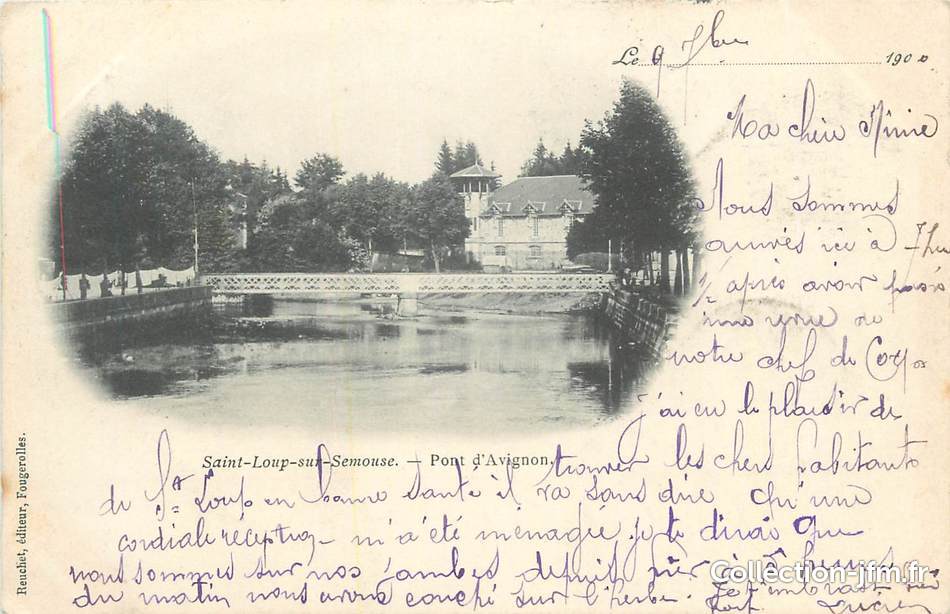 Le 9 7bre 1900
Ma chère Mimie
Nous sommes
arrivés ici à 7hes
1/2 après avoir passé
une revue de
notre chef de Corps
j'ai eu le plaisir de
Saint-Loup-sur-Semouse. — Pont d'Avignon.
trouver les chers habitants
de St Loup en bonne santé il va sans dire qu'une
cordiale réception m'a été ménagée. Je te dirai que
nous sommes sur nos jambes depuis hier à heures
du matin nous avons couché sur l'herbe. Je t'embrasse
Reuchet, éditeur, Fougerolles.
Collection-jfm.fr